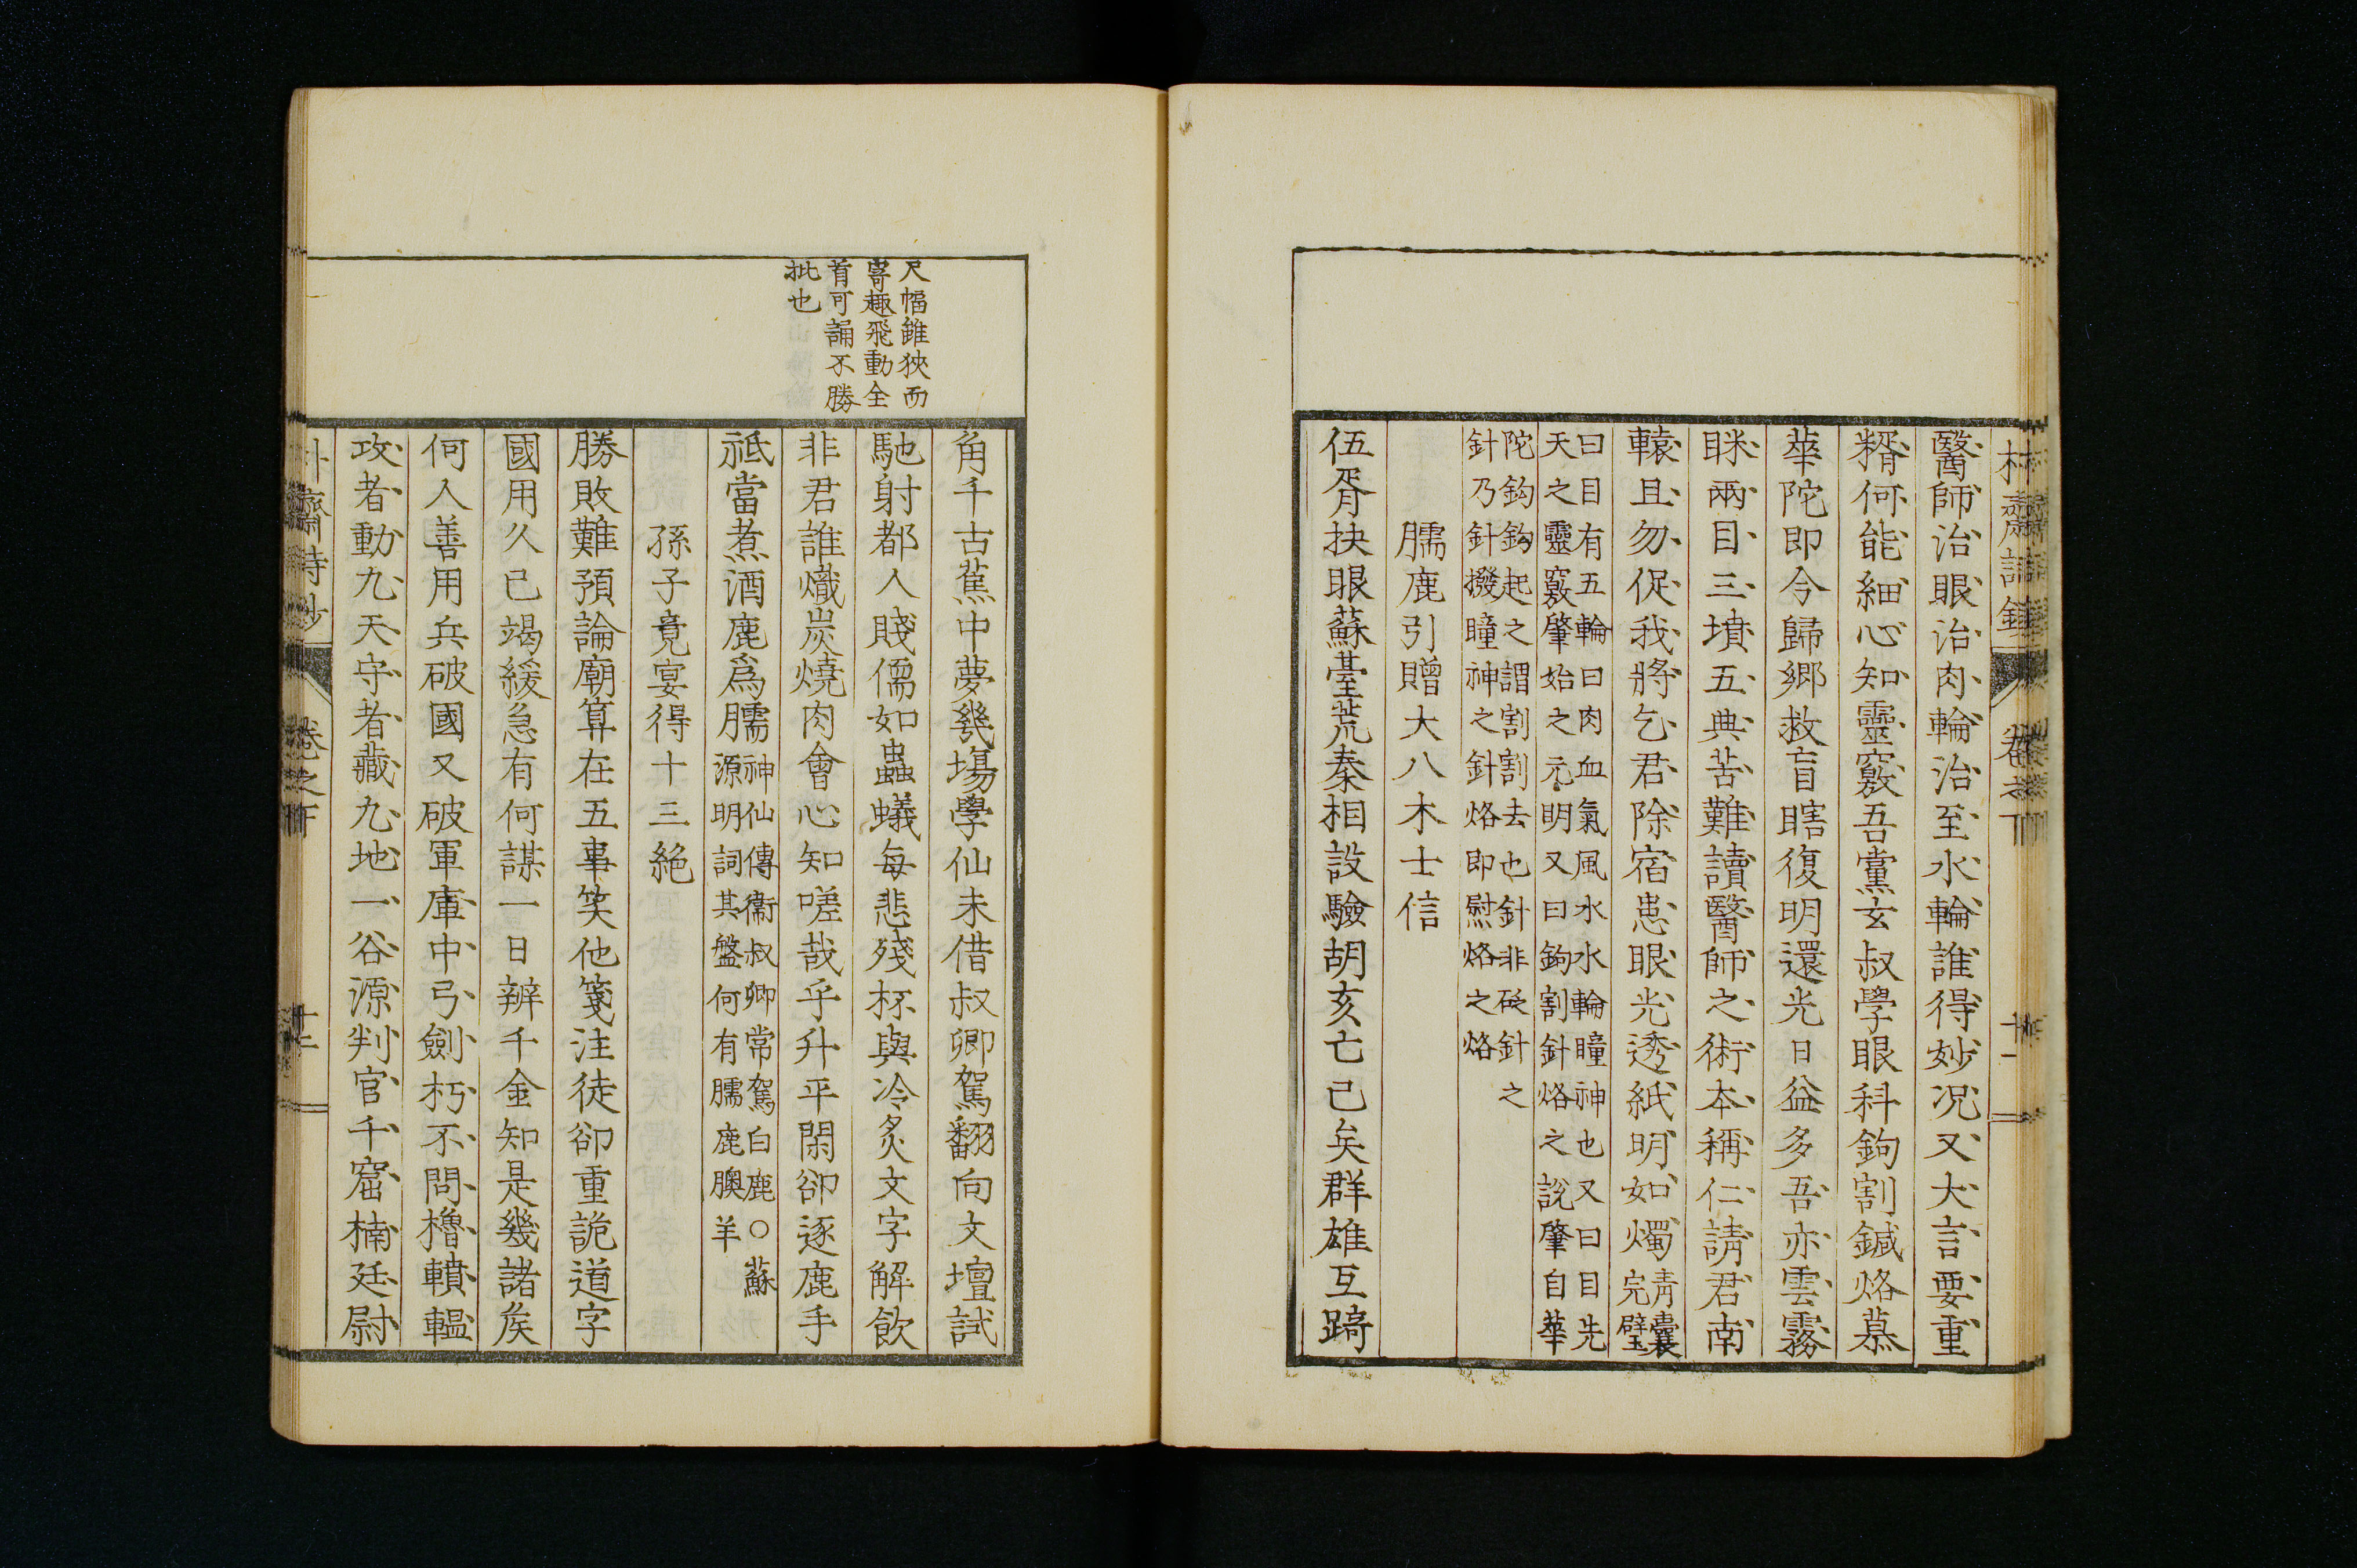 醫師治眼治肉輪治至水輪誰得妙况又大言要重
糈何能細心知靈竅吾黨玄叔學眼科鉤割鍼烙慕
華陀即今歸鄉救盲瞎復明還光日益多吾亦雲霧
眯兩目三墳五典苦難讀醫師之術本稱仁請君南
轅且勿促我將乞君除宿患眼光透紙明如燭青囊
完璧
曰目有五輪曰肉血氣風水水輪瞳神也又曰目先
天之靈竅肇始之元明又曰鉤割針烙之說肇自華
陀鈎鈎起之謂割割去也針非砭針之
針乃針撥瞳神之針烙即熨烙之烙
臑鹿引贈大八木士信
伍胥抉眼蘇臺荒秦相設驗胡亥亡已矣群雄互踦
卷之下
十一
尺幅雖狹而
寄趣飛動全
首可誦不勝
批也
角千古蕉中夢幾場學仙未借叔卿駕翻向文壇試
馳射都人賤儒如蟲蟻每悲殘杯與冷炙文字解飲
非君誰熾炭燒肉會心知嗟哉乎升平閑卻逐鹿手
祗當煮酒鹿爲臑神仙傳衞叔卿常駕白鹿○蘇
源明詞其盤何有臑鹿臑羊
孫子竟宴得十三絶
勝敗難預論廟算在五事笑他箋注徒卻重詭道字
國用久已竭緩急有何謀一日辨千金知是幾諸矦
何人善用兵破國又破軍庫中弓劍朽不問櫓轒轀
攻者動九天守者藏九地一谷源判官千窟楠廷尉
卷之下
十二